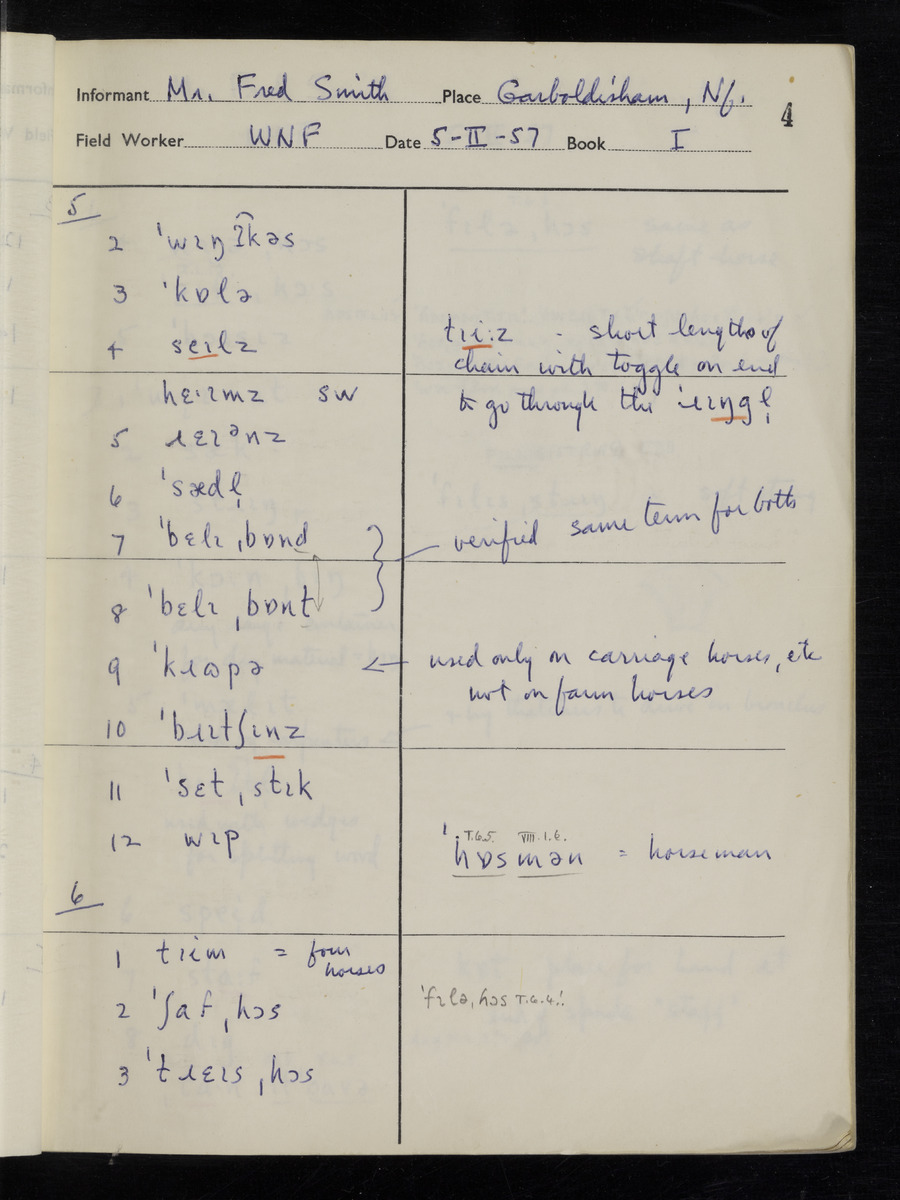 Informant Mr. Fred Smith Place Garboldisham, Nf. 4
Field Worker WNF Date 5-II-57 Book I
5
2 ˈwɪŋkəs
3 ˈkɒlə
4 seɪlz
tɹiːz - short lengths of
chain with toggle on end
to go through the ˈɹɪŋgl̩
hɛˑɪmz SW
5 ɹɛɪᵊnz
6 ˈsædl̩
7 ˈbɛlɪˌbɒnd
verified same term for both
8 ˈbɛlɪˌbɒnt
9 ˈkɹɒpə ← used only on carriage horses, etc
not on farm horses
10 ˈbɹɪtʃɪnz
11 ˈsɛtˌstɪk
12 wɪp
T.6.5. VIII.1.6.
ˈhɒsmən = horseman
6
1 tɹim = four
horses
2 ˈʃafˌhɔs
ˈfɪləˌhɔs T.6.4.!
3 ˈtɹɛɪsˌhɔs